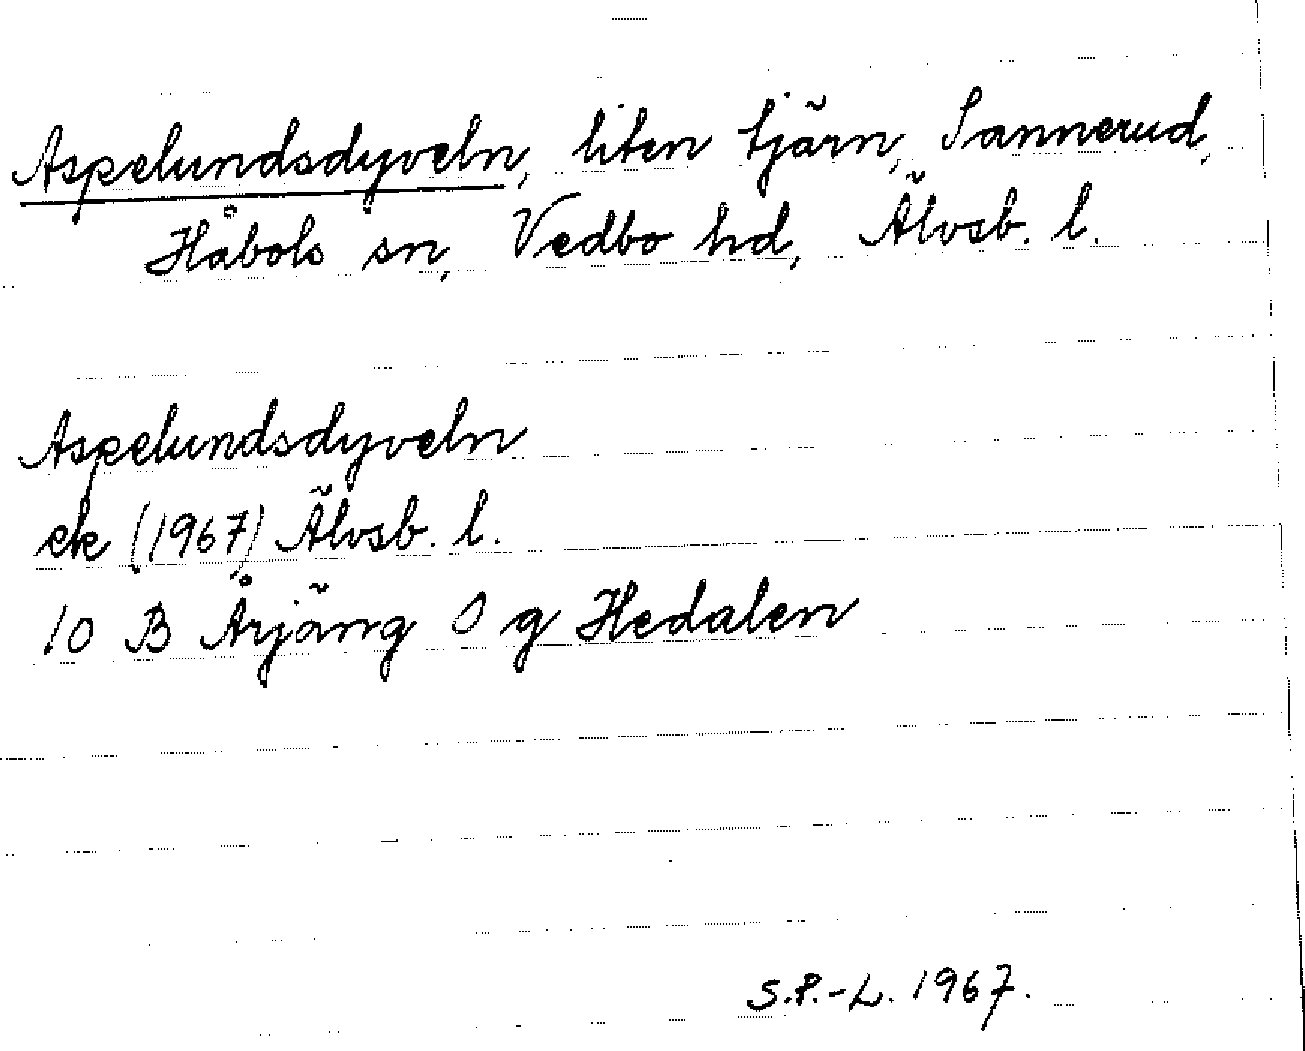 Aspelundsdyveln, liten tjärn, Sannerud,
Håbols sn, Vedbo hd, Älvsb. l.
Aspelundsdyveln
ek (1967) Älvsb. l.
10 B Årjäng 0 g Hedalen
S.P.-L. 1967.